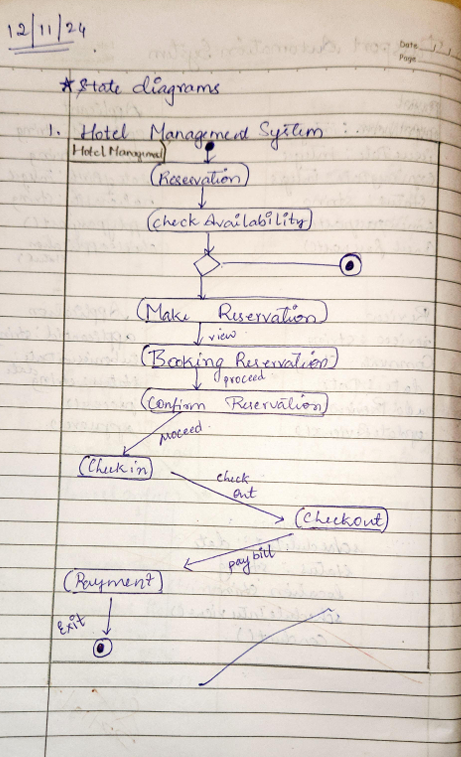 12/11/24
Date
Page
* State diagrams
1. Hotel Management System
Hotel Managemal
Reservation
check Availability
Make Reservation
view
Booking Reservation
proceed
Confirm Reservation
proceed.
Check in
check
out
Checkout
pay bill
Payment
Exit